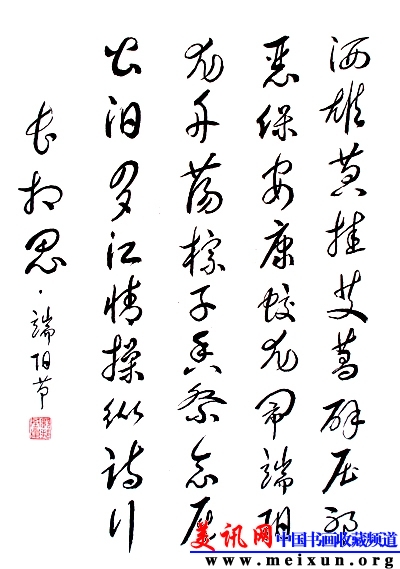 洒雄黄挂艾蒿辟厄邪
恶保安康蛟龙闹端阳
龙舟荡棕子香祭念屈
公汨罗江情操纵诗行
长相思·端阳节
美讯网 中国书画收藏频道
www.meixun.org